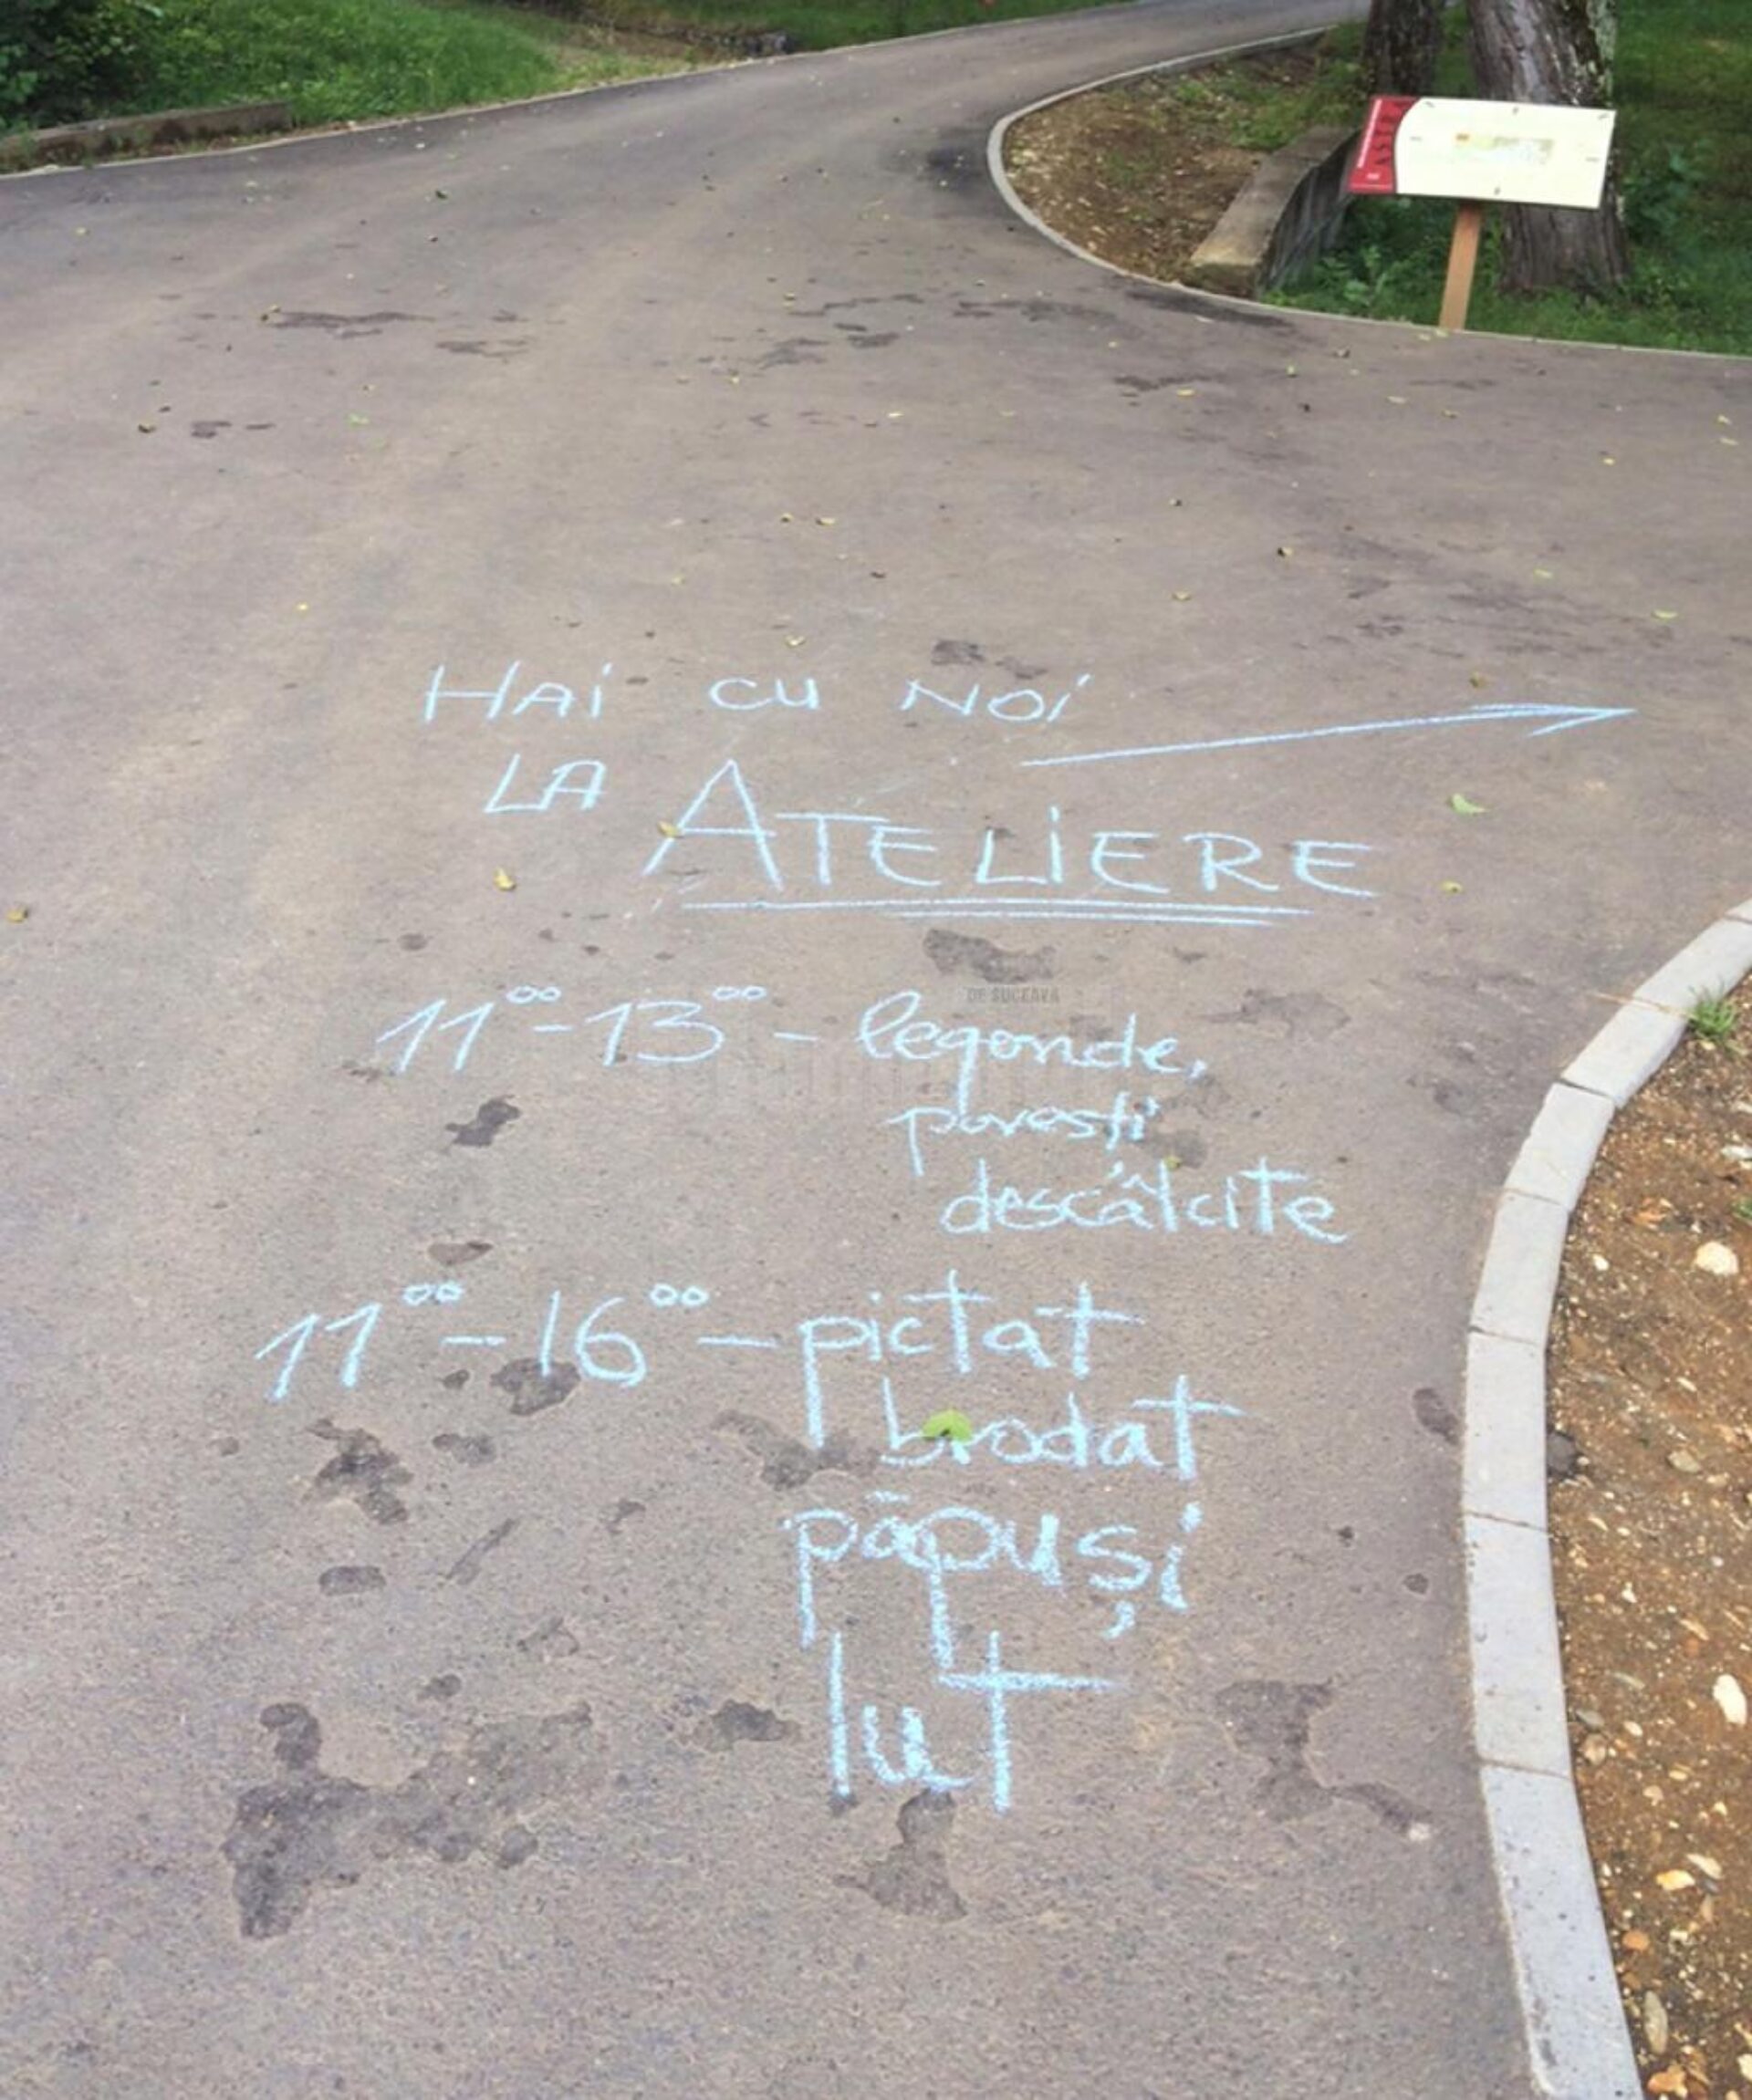 HAI CU NOI
LA ATELIERE
11⁰⁰-13⁰⁰- legende,
povești
descâlcite
11⁰⁰-16⁰⁰-pictat
brodat
păpuși
lut
DE SUCEAVA